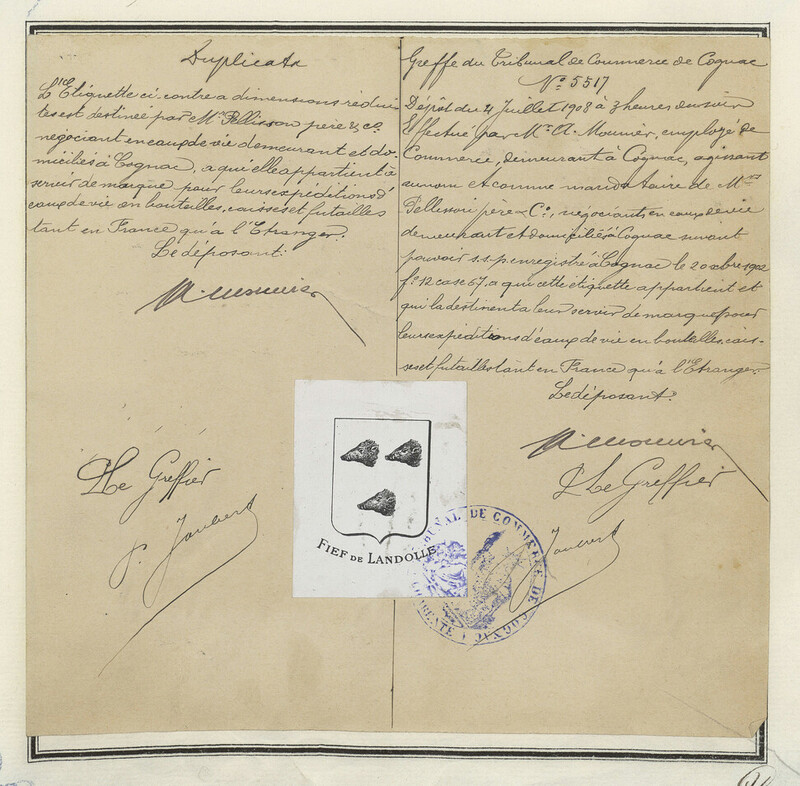 Duplicata
L'Etiquette ci-contre a dimensions rédui-
tes est destinée par Mrs Pellisson père & Co
négociant en eaux de vie demeurant et do-
miciliés à Cognac, a qui elle appartient à
servir de marque pour leurs expéditions d'
eaux de vie en bouteilles, caisses et futailles
tant en France qu'à l'Etranger.
Le déposant:
A. Mounier
P Le Greffier
P. Joubert
Greffe du Tribunal de Commerce de Cognac
No 5517
Dépôt du 4 Juillet 1908 à 3 heures du soir
Effectué par Mr A. Mounier, employé de
Commerce, demeurant à Cognac, agissant
au nom et comme mandataire de Mrs
Pellisson père & Co, négociants en eaux de vie
demeurant et domiciliés à Cognac suivant
pouvoir s.s.p. enregistré à Cognac le 20 xbre 1902
fo 12 case 67, a qui cette étiquette appartient et
qui la destinent a leur servir de marque pour
leurs expéditions d'eaux de vie en bouteilles, cais-
ses et futailles tant en France qu'à l'Etranger.
Le déposant:
A. Mounier
P Le Greffier
Joubert
FIEF DE LANDOLLE
TRIBUNAL DE COMMERCE DE COGNAC
CHARENTE